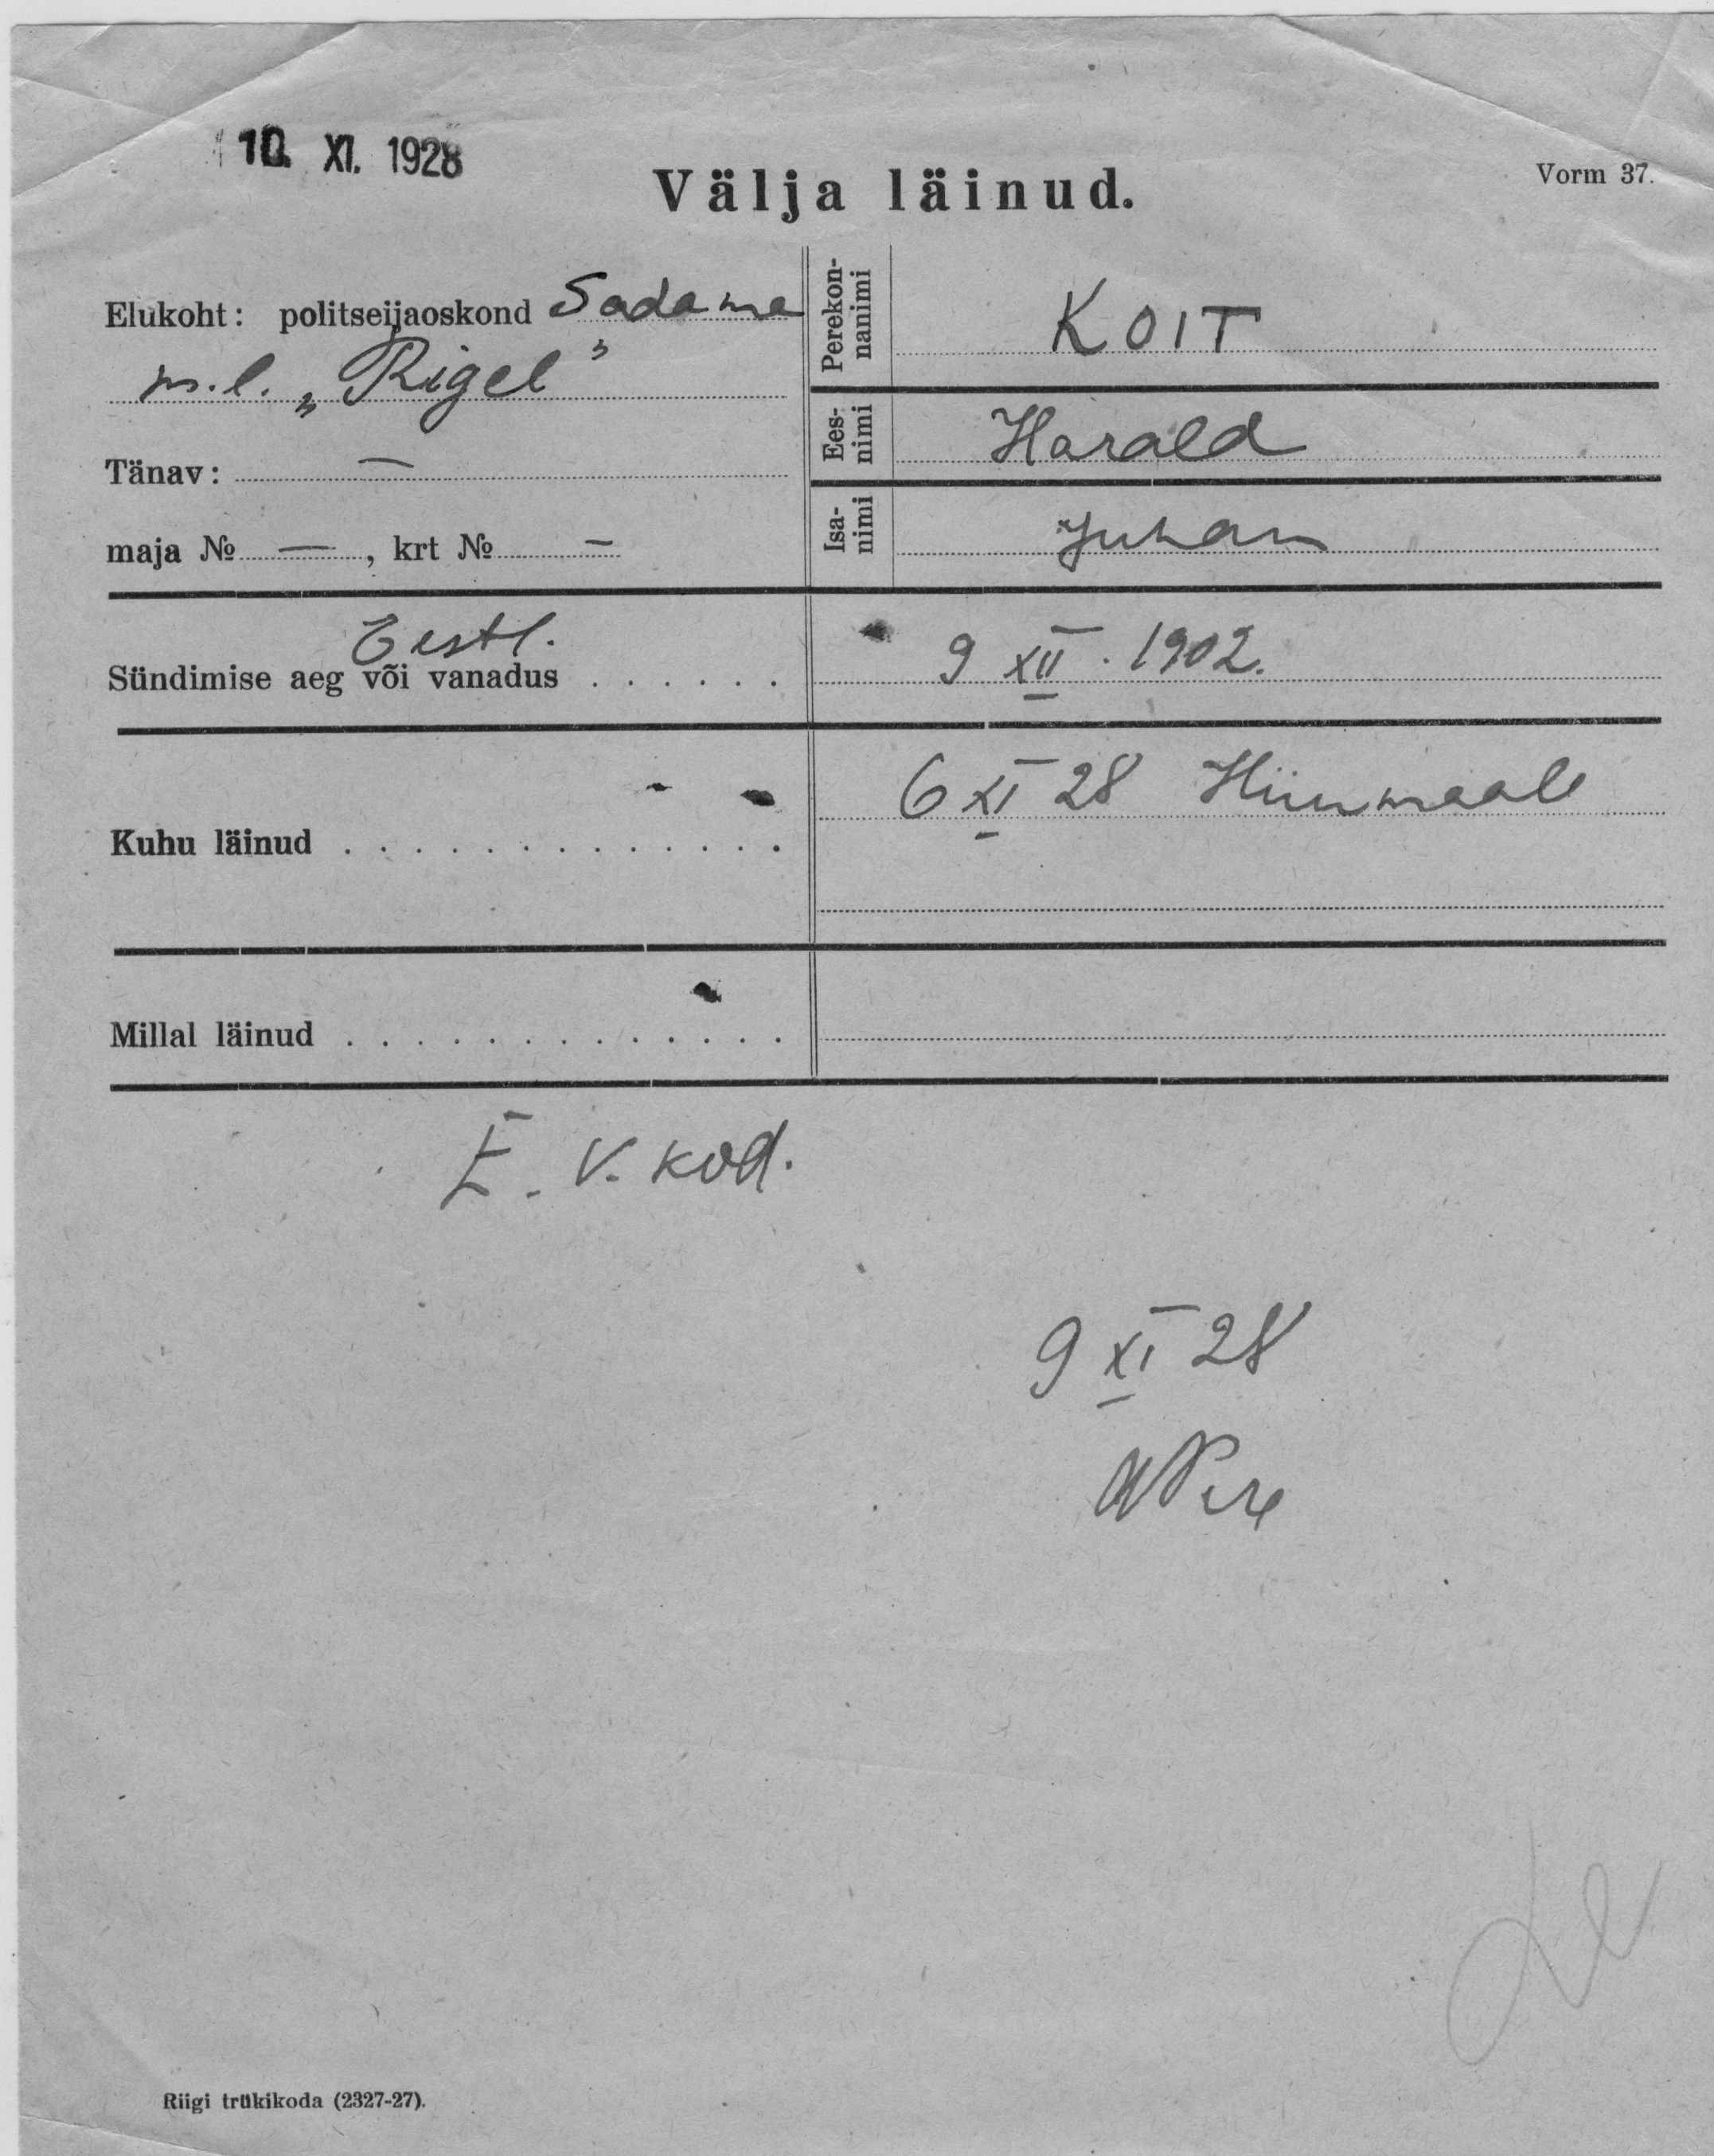 10. XI. 1928
Vorm 37.
Välja läinud.
Elukoht: politseijaoskond Sadama
m.l. „Rigel”
Tänav: —
maja № —, krt № —
Perekon-
nanimi
KOIT
Ees-
nimi
Harald
Isa-
nimi
Juhan
Eestl.
Sündimise aeg või vanadus . . . . . .
9 XII. 1902.
Kuhu läinud . . . . . . . . . . . . .
6 XI 28 Hiiumaale
Millal läinud . . . . . . . . . . . . .
E. V. kod.
9 XI 28
Riigi trükikoda (2327-27).